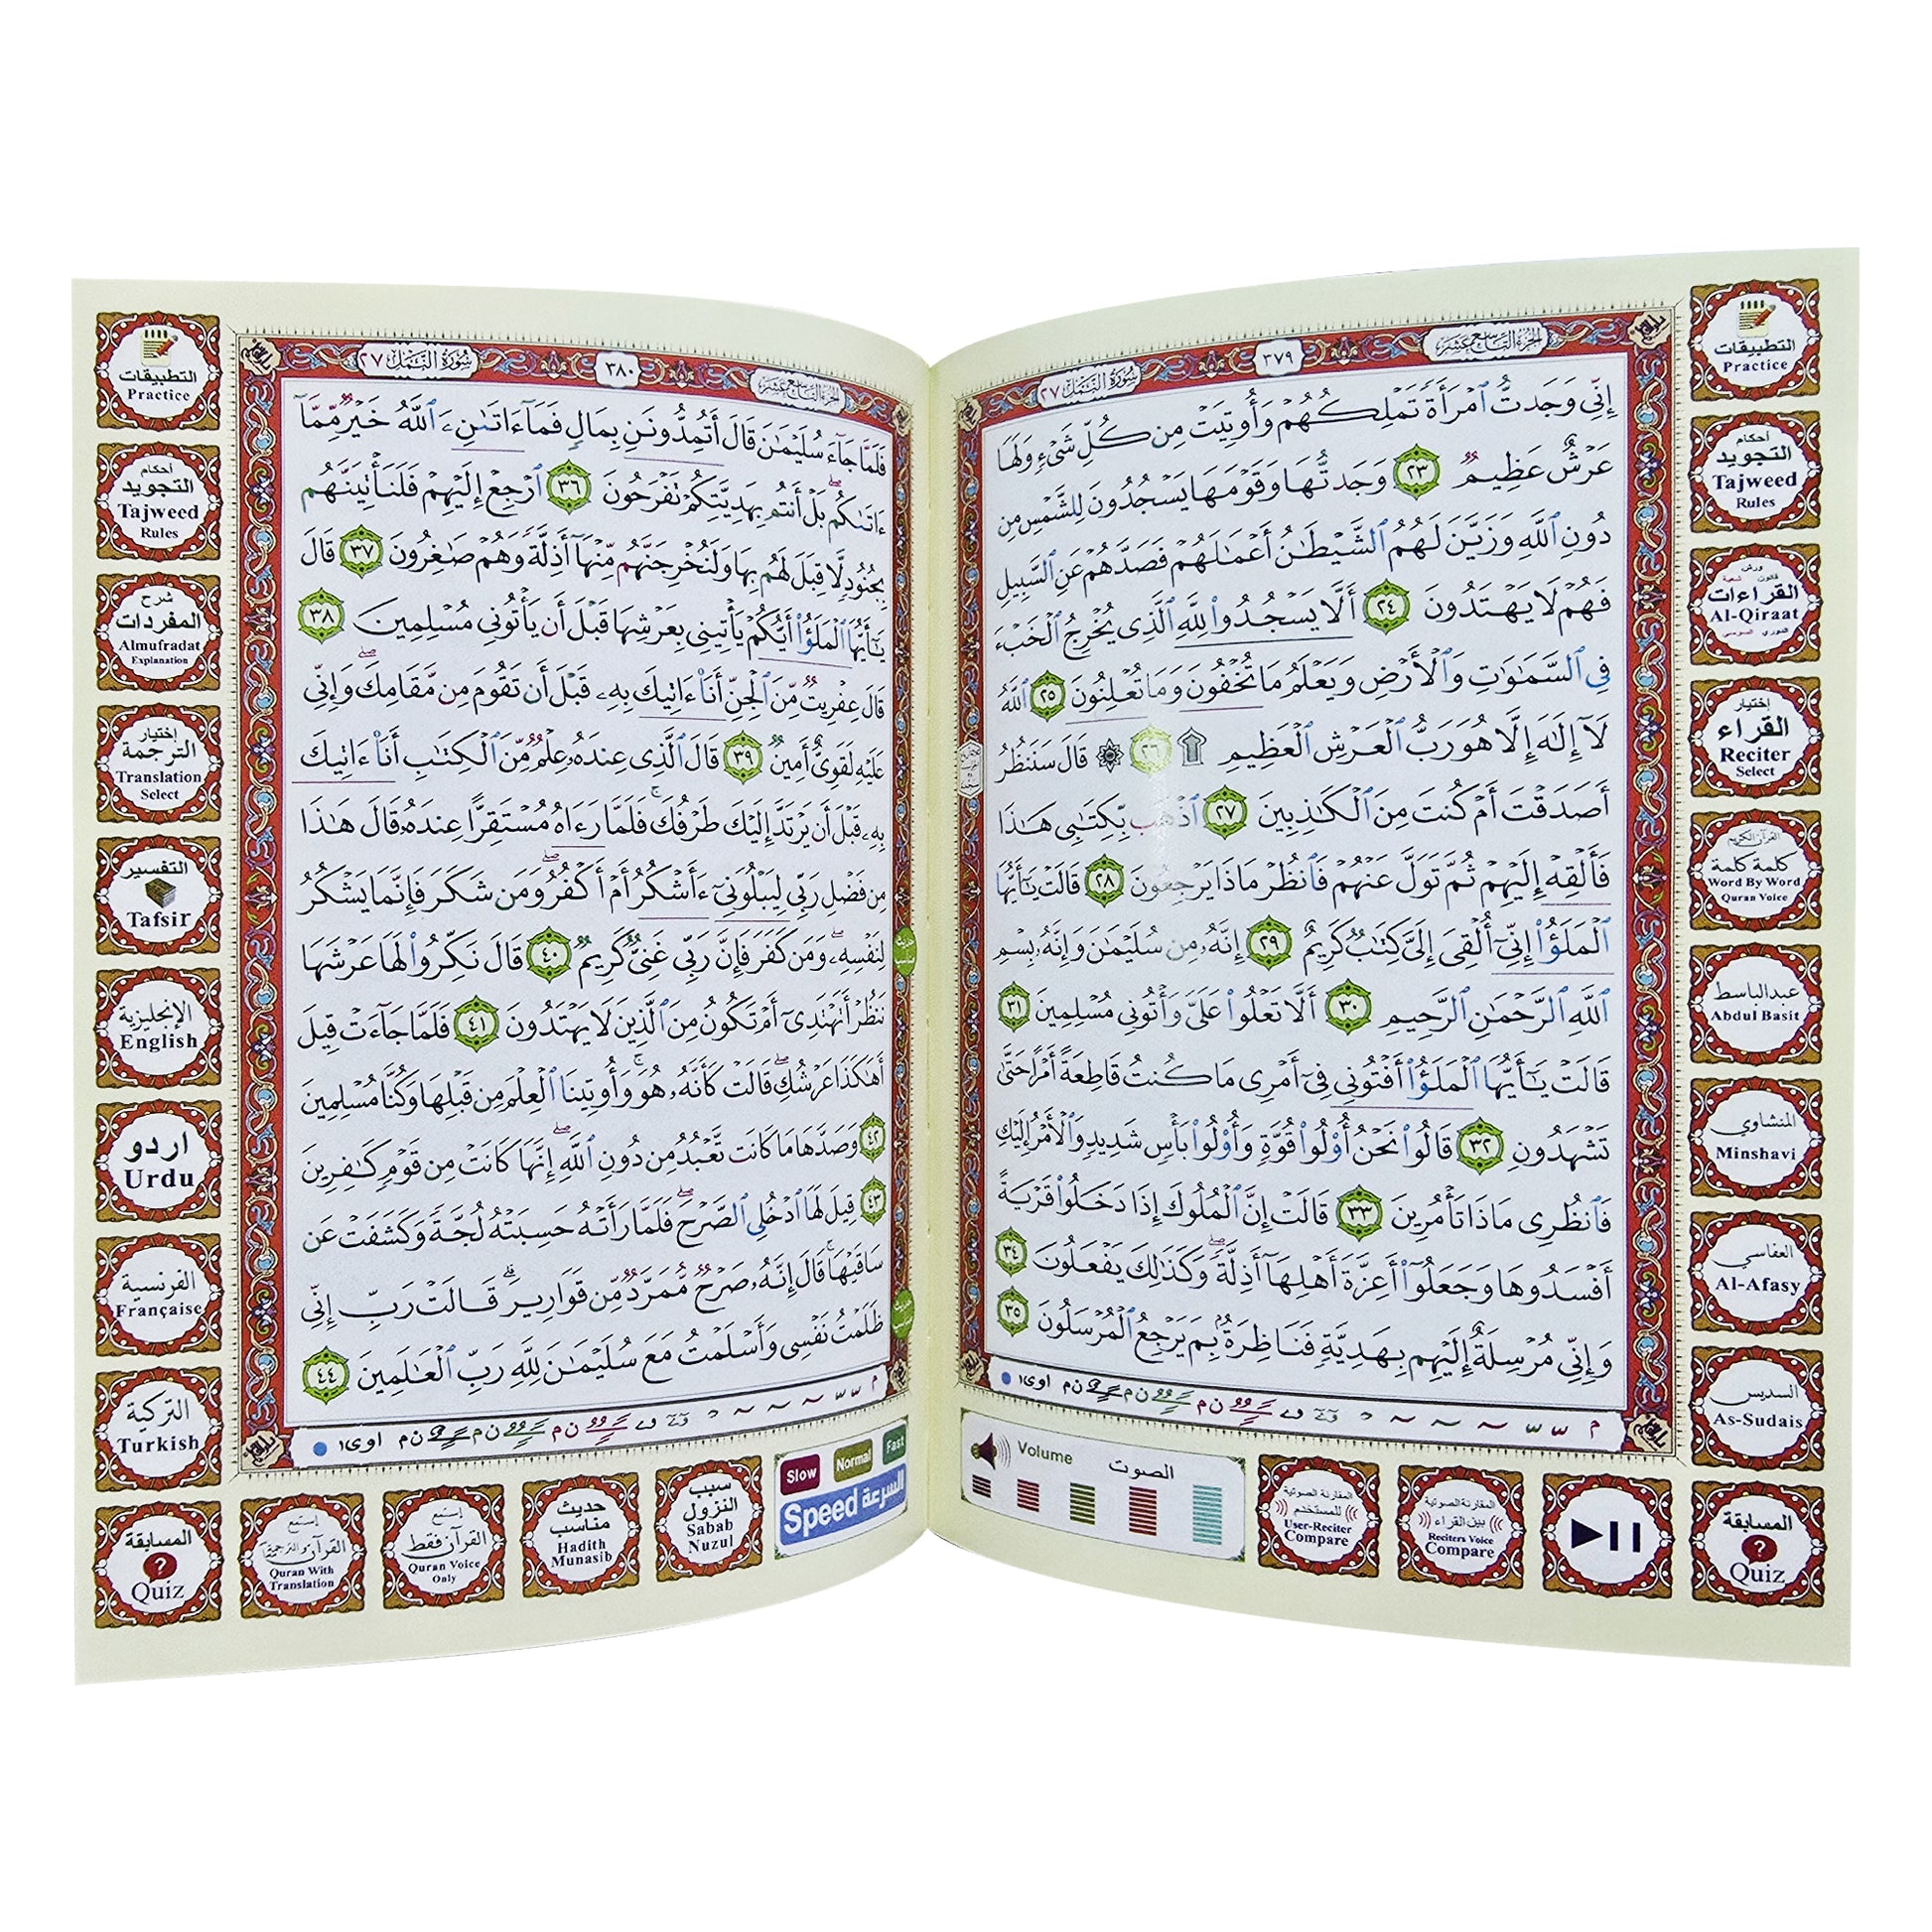 الجزء التاسع عشر
٣٧٩
سورة النمل ٢٧
إِنِّى وَجَدتُّ ٱمْرَأَةً تَمْلِكُهُمْ وَأُوتِيَتْ مِن كُلِّ شَىْءٍ وَلَهَا
عَرْشٌ عَظِيمٌ ٢٣ وَجَدتُّهَا وَقَوْمَهَا يَسْجُدُونَ لِلشَّمْسِ مِن
دُونِ ٱللَّهِ وَزَيَّنَ لَهُمُ ٱلشَّيْطَٰنُ أَعْمَٰلَهُمْ فَصَدَّهُمْ عَنِ ٱلسَّبِيلِ
فَهُمْ لَا يَهْتَدُونَ ٢٤ أَلَّا يَسْجُدُوا۟ لِلَّهِ ٱلَّذِى يُخْرِجُ ٱلْخَبْءَ
فِى ٱلسَّمَٰوَٰتِ وَٱلْأَرْضِ وَيَعْلَمُ مَا تُخْفُونَ وَمَا تُعْلِنُونَ ٢٥ ٱللَّهُ
لَآ إِلَٰهَ إِلَّا هُوَ رَبُّ ٱلْعَرْشِ ٱلْعَظِيمِ ۩ ٢٦ ۞ قَالَ سَنَنظُرُ
أَصَدَقْتَ أَمْ كُنتَ مِنَ ٱلْكَٰذِبِينَ ٢٧ ٱذْهَب بِّكِتَٰبِى هَٰذَا
فَأَلْقِهْ إِلَيْهِمْ ثُمَّ تَوَلَّ عَنْهُمْ فَٱنظُرْ مَاذَا يَرْجِعُونَ ٢٨ قَالَتْ يَٰٓأَيُّهَا
ٱلْمَلَؤُا۟ إِنِّىٓ أُلْقِىَ إِلَىَّ كِتَٰبٌ كَرِيمٌ ٢٩ إِنَّهُۥ مِن سُلَيْمَٰنَ وَإِنَّهُۥ بِسْمِ
ٱللَّهِ ٱلرَّحْمَٰنِ ٱلرَّحِيمِ ٣٠ أَلَّا تَعْلُوا۟ عَلَىَّ وَأْتُونِى مُسْلِمِينَ ٣١
قَالَتْ يَٰٓأَيُّهَا ٱلْمَلَؤُا۟ أَفْتُونِى فِىٓ أَمْرِى مَا كُنتُ قَاطِعَةً أَمْرًا حَتَّىٰ
تَشْهَدُونِ ٣٢ قَالُوا۟ نَحْنُ أُو۟لُوا۟ قُوَّةٍ وَأُو۟لُوا۟ بَأْسٍ شَدِيدٍ وَٱلْأَمْرُ إِلَيْكِ
فَٱنظُرِى مَاذَا تَأْمُرِينَ ٣٣ قَالَتْ إِنَّ ٱلْمُلُوكَ إِذَا دَخَلُوا۟ قَرْيَةً
أَفْسَدُوهَا وَجَعَلُوٓا۟ أَعِزَّةَ أَهْلِهَآ أَذِلَّةً ۖ وَكَذَٰلِكَ يَفْعَلُونَ ٣٤
وَإِنِّى مُرْسِلَةٌ إِلَيْهِم بِهَدِيَّةٍ فَنَاظِرَةٌۢ بِمَ يَرْجِعُ ٱلْمُرْسَلُونَ ٣٥
التطبيقات
Practice
أحكام
التجويد
Tajweed
Rules
ورش
قالون شعبة
القراءات
Al-Qiraat
الدوري السوسي
إختيار
القراء
Reciter
Select
القرآن الكريم
كلمة كلمة
Word By Word
Quran Voice
عبدالباسط
Abdul Basit
المنشاوي
Minshavi
العفاسي
Al-Afasy
السديس
As-Sudais
المسابقة
?
Quiz
المقارنة الصوتية
بين القراء
Reciters Voice
Compare
المقارنة الصوتية
للمستخدم
User-Reciter
Compare
Volume الصوت
الجزء التاسع عشر
٣٨٠
سورة النمل ٢٧
فَلَمَّا جَآءَ سُلَيْمَٰنَ قَالَ أَتُمِدُّونَنِ بِمَالٍ فَمَآ ءَاتَىٰنِۦَ ٱللَّهُ خَيْرٌ مِّمَّآ
ءَاتَىٰكُم ۖ بَلْ أَنتُم بِهَدِيَّتِكُمْ تَفْرَحُونَ ٣٦ ٱرْجِعْ إِلَيْهِمْ فَلَنَأْتِيَنَّهُم
بِجُنُودٍ لَّا قِبَلَ لَهُم بِهَا وَلَنُخْرِجَنَّهُم مِّنْهَآ أَذِلَّةً وَهُمْ صَٰغِرُونَ ٣٧ قَالَ
يَٰٓأَيُّهَا ٱلْمَلَؤُا۟ أَيُّكُمْ يَأْتِينِى بِعَرْشِهَا قَبْلَ أَن يَأْتُونِى مُسْلِمِينَ ٣٨
قَالَ عِفْرِيتٌ مِّنَ ٱلْجِنِّ أَنَا۠ ءَاتِيكَ بِهِۦ قَبْلَ أَن تَقُومَ مِن مَّقَامِكَ ۖ وَإِنِّى
عَلَيْهِ لَقَوِىٌّ أَمِينٌ ٣٩ قَالَ ٱلَّذِى عِندَهُۥ عِلْمٌ مِّنَ ٱلْكِتَٰبِ أَنَا۠ ءَاتِيكَ
بِهِۦ قَبْلَ أَن يَرْتَدَّ إِلَيْكَ طَرْفُكَ ۚ فَلَمَّا رَءَاهُ مُسْتَقِرًّا عِندَهُۥ قَالَ هَٰذَا
مِن فَضْلِ رَبِّى لِيَبْلُوَنِىٓ ءَأَشْكُرُ أَمْ أَكْفُرُ ۖ وَمَن شَكَرَ فَإِنَّمَا يَشْكُرُ
لِنَفْسِهِۦ ۖ وَمَن كَفَرَ فَإِنَّ رَبِّى غَنِىٌّ كَرِيمٌ ٤٠ قَالَ نَكِّرُوا۟ لَهَا عَرْشَهَا
نَنظُرْ أَتَهْتَدِىٓ أَمْ تَكُونُ مِنَ ٱلَّذِينَ لَا يَهْتَدُونَ ٤١ فَلَمَّا جَآءَتْ قِيلَ
أَهَٰكَذَا عَرْشُكِ ۖ قَالَتْ كَأَنَّهُۥ هُوَ ۚ وَأُوتِينَا ٱلْعِلْمَ مِن قَبْلِهَا وَكُنَّا مُسْلِمِينَ
٤٢ وَصَدَّهَا مَا كَانَت تَّعْبُدُ مِن دُونِ ٱللَّهِ ۖ إِنَّهَا كَانَتْ مِن قَوْمٍ كَٰفِرِينَ
٤٣ قِيلَ لَهَا ٱدْخُلِى ٱلصَّرْحَ ۖ فَلَمَّا رَأَتْهُ حَسِبَتْهُ لُجَّةً وَكَشَفَتْ عَن
سَاقَيْهَا ۚ قَالَ إِنَّهُۥ صَرْحٌ مُّمَرَّدٌ مِّن قَوَارِيرَ ۗ قَالَتْ رَبِّ إِنِّى
ظَلَمْتُ نَفْسِى وَأَسْلَمْتُ مَعَ سُلَيْمَٰنَ لِلَّهِ رَبِّ ٱلْعَٰلَمِينَ ٤٤
التطبيقات
Practice
أحكام
التجويد
Tajweed
Rules
شرح
المفردات
Almufradat
Explanation
إختيار
الترجمة
Translation
Select
التفسير
Tafsir
الإنجليزية
English
اردو
Urdu
الفرنسية
Française
التركية
Turkish
المسابقة
?
Quiz
إستمع
القرآن والترجمة
Quran With
Translation
إستمع
القرآن فقط
Quran Voice
Only
حديث
مناسب
Hadith
Munasib
سبب
النزول
Sabab
Nuzul
Slow Normal Fast
Speed السرعة